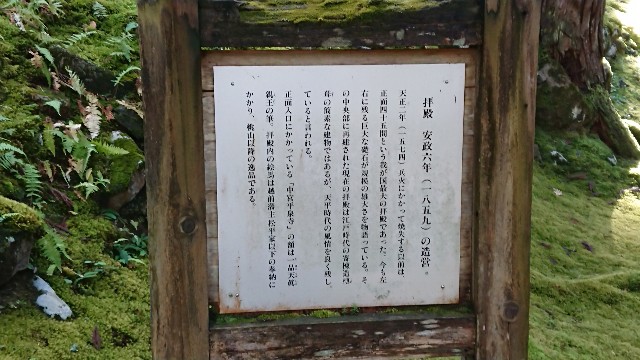 拝殿 安政六年(一八五九)の造営。
天正二年(一五七四)兵火にかかって焼失する以前は、
正面四十五間という我が国最大の拝殿であった。今も左
右に残る巨大な礎石が規模の雄大さを物語っている。そ
の中央部に再建された現在の拝殿は江戸時代の寄棟造榑
葺の簡素な建物ではあるが、天平時代の風情を良く残し
ていると言われる。
正面入口にかかっている「中宮平泉寺」の額は一品天眞
親王の筆、拝殿内の絵馬は越前藩主松平家以下の奉納に
かかり、桃山以降の逸品である。